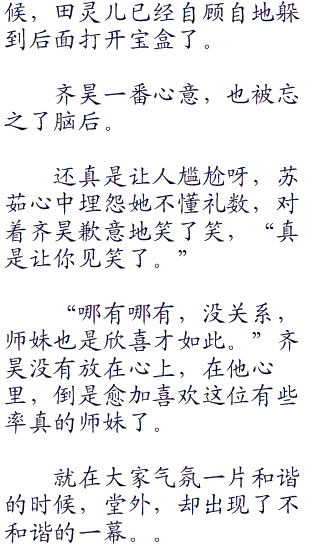 候，田灵儿已经自顾自地躲
到后面打开宝盒了。
齐昊一番心意，也被忘
之了脑后。
还真是让人尴尬呀，苏
茹心中埋怨她不懂礼数，对
着齐昊歉意地笑了笑，“真
是让你见笑了。”
“哪有哪有，没关系，
师妹也是欣喜才如此。”齐
昊没有放在心上，在他心
里，倒是愈加喜欢这位有些
率真的师妹了。
就在大家气氛一片和谐
的时候，堂外，却出现了不
和谐的一幕。。